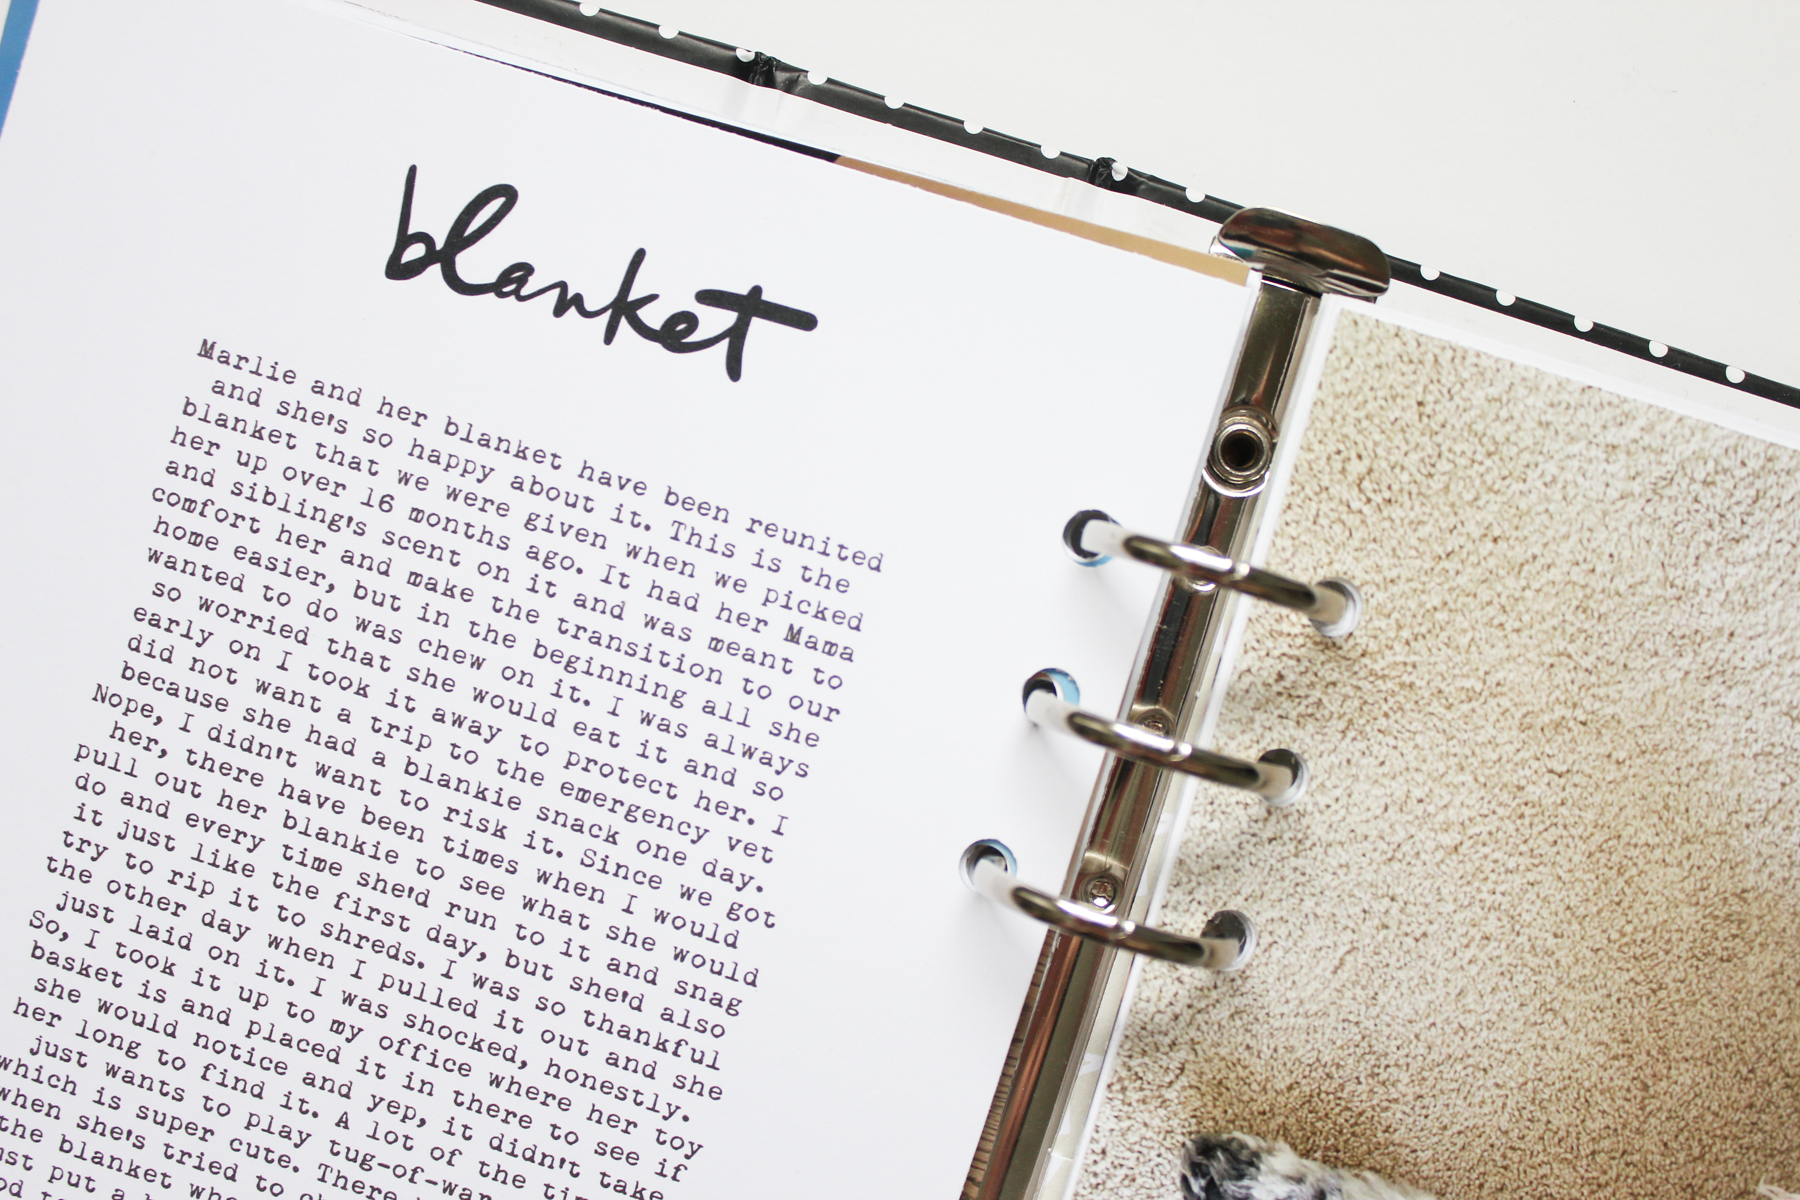 blanket
Marlie and her blanket have been reunited
and she's so happy about it. This is the
blanket that we were given when we picked
her up over 16 months ago. It had her Mama
and sibling's scent on it and was meant to
comfort her and make the transition to our
home easier, but in the beginning all she
wanted to do was chew on it. I was always
so worried that she would eat it and so
early on I took it away to protect her. I
did not want a trip to the emergency vet
because she had a blankie snack one day.
Nope, I didn't want to risk it. Since we got
her, there have been times when I would
pull out her blankie to see what she would
do and every time she'd run to it and snag
it just like the first day, but she'd also
try to rip it to shreds. I was so thankful
the other day when I pulled it out and she
just laid on it. I was shocked, honestly.
So, I took it up to my office where her toy
basket is and placed it in there to see if
she would notice and yep, it didn't take
her long to find it. A lot of the
just wants to play tug-of-war
which is super cute. There
when she's tried to
the blanket
put a